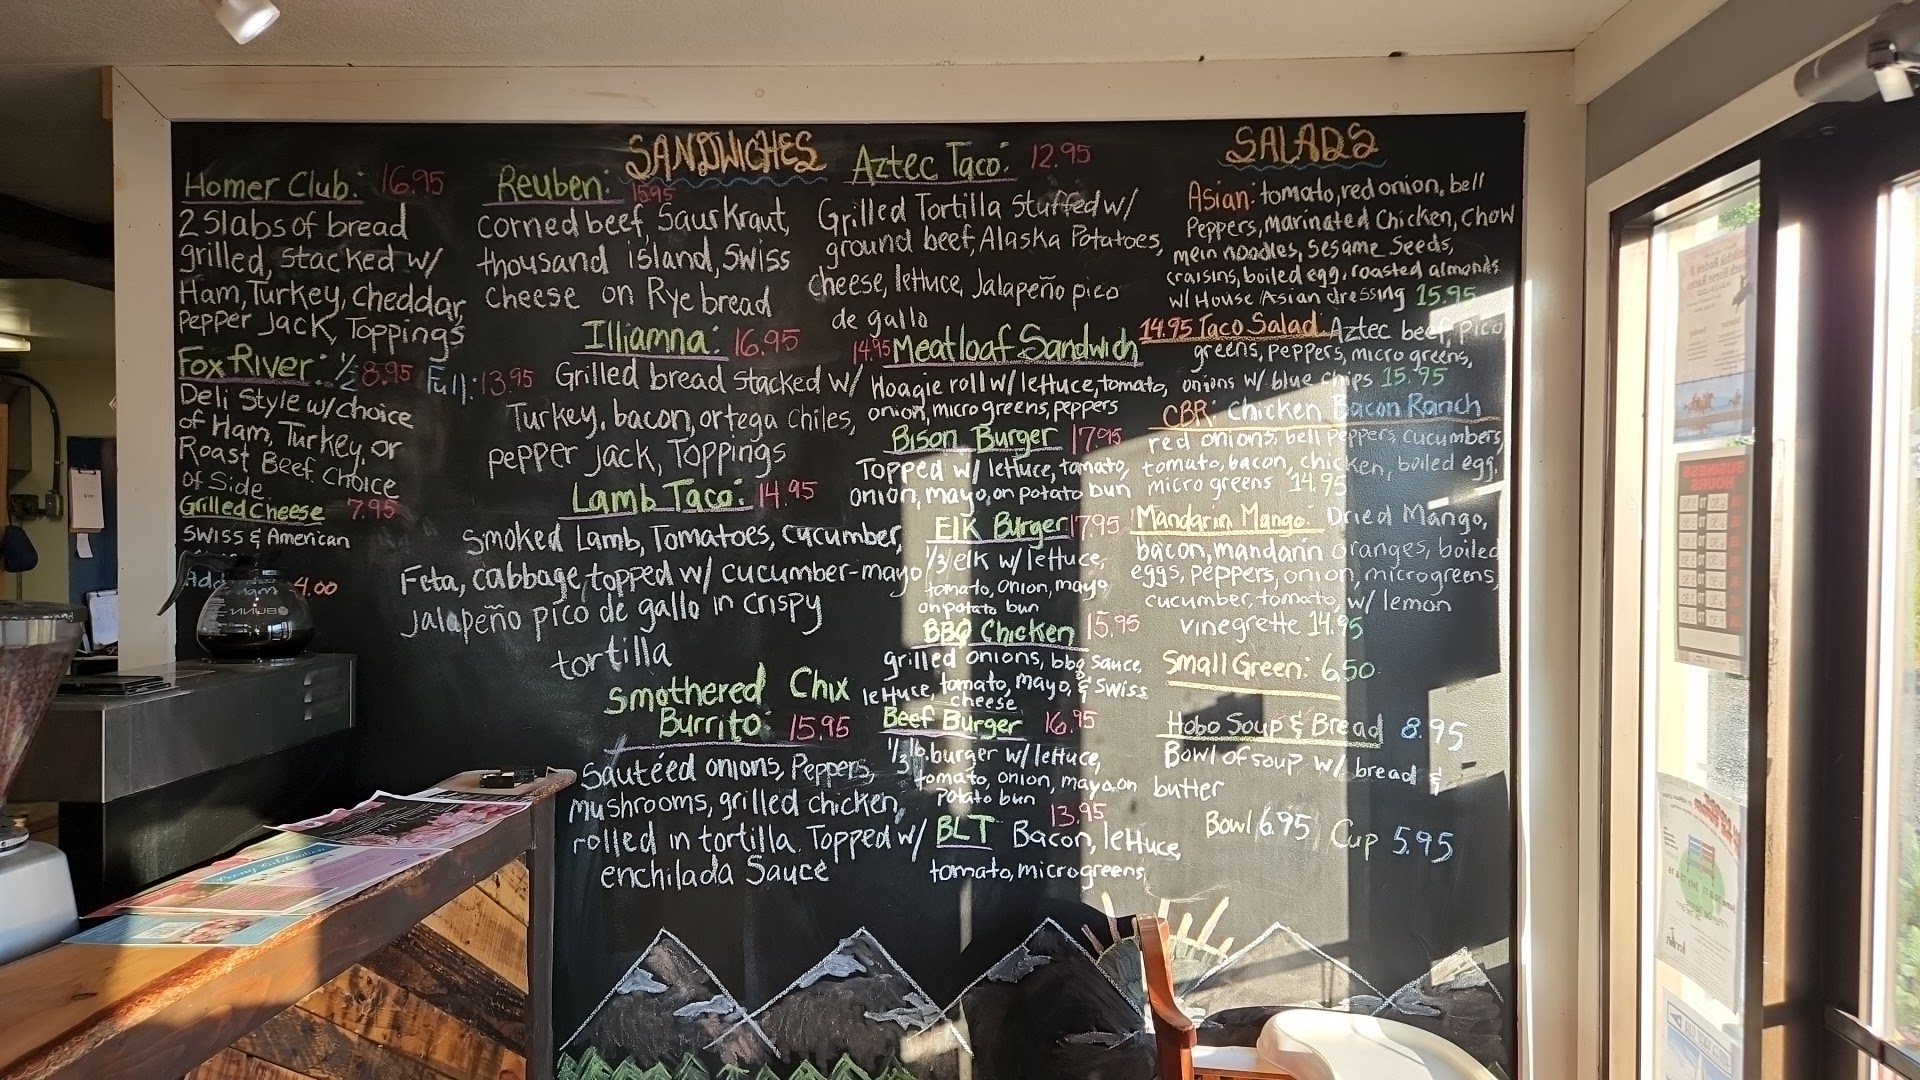 SANDWICHES
Homer Club: 16.95
2 Slabs of bread
grilled, stacked w/
Ham, Turkey, cheddar,
pepper Jack, Toppings
Fox River: 1/2 8.95 Full: 13.95
Deli Style w/ choice
of Ham, Turkey, or
Roast Beef. Choice
of Side
Grilled Cheese 7.95
SWISS & American
4.00
BUNN
Reuben: 15.95
corned beef, SaurKraut,
thousand island, Swiss
Cheese on Rye bread
Illiamna: 16.95
Grilled bread stacked w/
Turkey, bacon, ortega chiles,
pepper Jack, Toppings
Lamb Taco: 14.95
Smoked Lamb, Tomatoes, cucumber,
Feta, cabbage topped w/ cucumber-mayo
Jalapeño pico de gallo in crispy
tortilla
Smothered Chix
Burrito: 15.95
Sautéed onions, Peppers,
mushrooms, grilled chicken,
rolled in tortilla. Topped w/
enchilada Sauce
Aztec Taco: 12.95
Grilled Tortilla Stuffed w/
ground beef, Alaska Potatoes,
cheese, lettuce, Jalapeño pico
de gallo
14.95 Meatloaf Sandwich
Hoagie roll w/ lettuce, tomato,
onion, micro greens, peppers
Bison Burger 17.95
Topped w/ lettuce, tomato,
onion, mayo, on potato bun
Elk Burger 17.95
1/3 elk w/ lettuce,
tomato, onion, mayo,
on potato bun
BBQ Chicken 15.95
grilled onions, bbq sauce,
lettuce, tomato, mayo, & swiss
cheese
Beef Burger 16.95
1/3 lb. burger w/ lettuce,
tomato, onion, mayo, on
potato bun
13.95
BLT Bacon, lettuce,
tomato, microgreens,
SALADS
Asian: tomato, red onion, bell
Peppers, marinated Chicken, Chow
mein noodles, Sesame Seeds,
craisins, boiled egg, roasted almonds
w/ House Asian dressing 15.95
14.95 Taco Salad: Aztec beef, pico,
greens, peppers, micro greens,
onions w/ blue chips 15.95
CBR: Chicken Bacon Ranch
red onions, bell peppers, cucumbers,
tomato, bacon, chicken, boiled egg,
micro greens 14.95
Mandarin Mango: Dried Mango,
bacon, mandarin oranges, boiled
eggs, peppers, onion, microgreens,
cucumber, tomato, w/ lemon
vinegrette 14.95
Small Green: 6.50
Hobo Soup & Bread 8.95
Bowl of soup w/ bread &
butter
Bowl 6.95 Cup 5.95
BUSINESS
HOURS